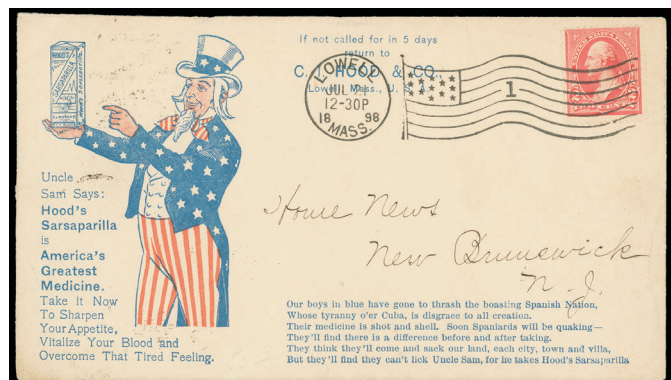 If not called for in 5 days
return to
C. I. HOOD & CO.,
Lowell, Mass., U. S. A.
LOWELL
JUL
12-30P
18 98
MASS.
1
HOOD'S
SARSAPARILLA
Uncle
Sam Says:
Hood's
Sarsaparilla
is
America's
Greatest
Medicine.
Take it Now
To Sharpen
Your Appetite,
Vitalize Your Blood and
Overcome That Tired Feeling.
Home News
New Brunswick
N. J.
Our boys in blue have gone to thrash the boasting Spanish Nation,
Whose tyranny o'er Cuba, is disgrace to all creation.
Their medicine is shot and shell. Soon Spaniards will be quaking—
They'll find there is a difference before and after taking.
They think they'll come and sack our land, each city, town and villa,
But they'll find they can't lick Uncle Sam, for he takes Hood's Sarsaparilla